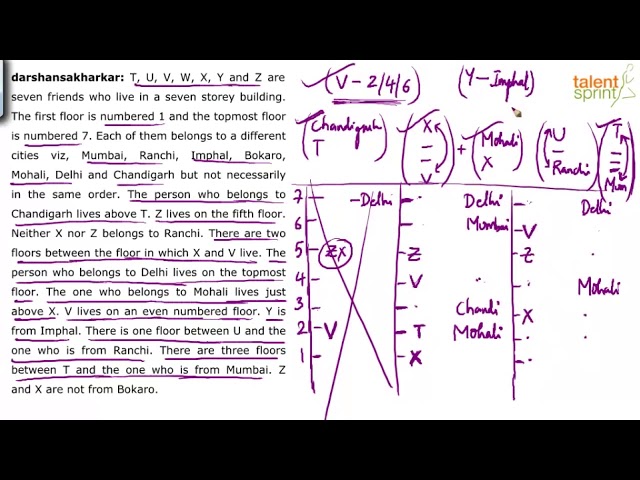 darshansakharkar: T, U, V, W, X, Y and Z are
seven friends who live in a seven storey building.
The first floor is numbered 1 and the topmost floor
is numbered 7. Each of them belongs to a different
cities viz, Mumbai, Ranchi, Imphal, Bokaro,
Mohali, Delhi and Chandigarh but not necessarily
in the same order. The person who belongs to
Chandigarh lives above T. Z lives on the fifth floor.
Neither X nor Z belongs to Ranchi. There are two
floors between the floor in which X and V live. The
person who belongs to Delhi lives on the topmost
floor. The one who belongs to Mohali lives just
above X. V lives on an even numbered floor. Y is
from Imphal. There is one floor between U and the
one who is from Ranchi. There are three floors
between T and the one who is from Mumbai. Z
and X are not from Bokaro.
V - 2/4/6
(Y - Imphal)
talent
sprint
Chandigarh
T
X
V
+
Mohali
X
U
Ranchi
T
Mum
7 - Delhi
6
5 ZX
4
3
2 V
1
Delhi
Mumbai
Z
V
Chandi
T Mohali
X
Delhi
V
Z
Mohali
X